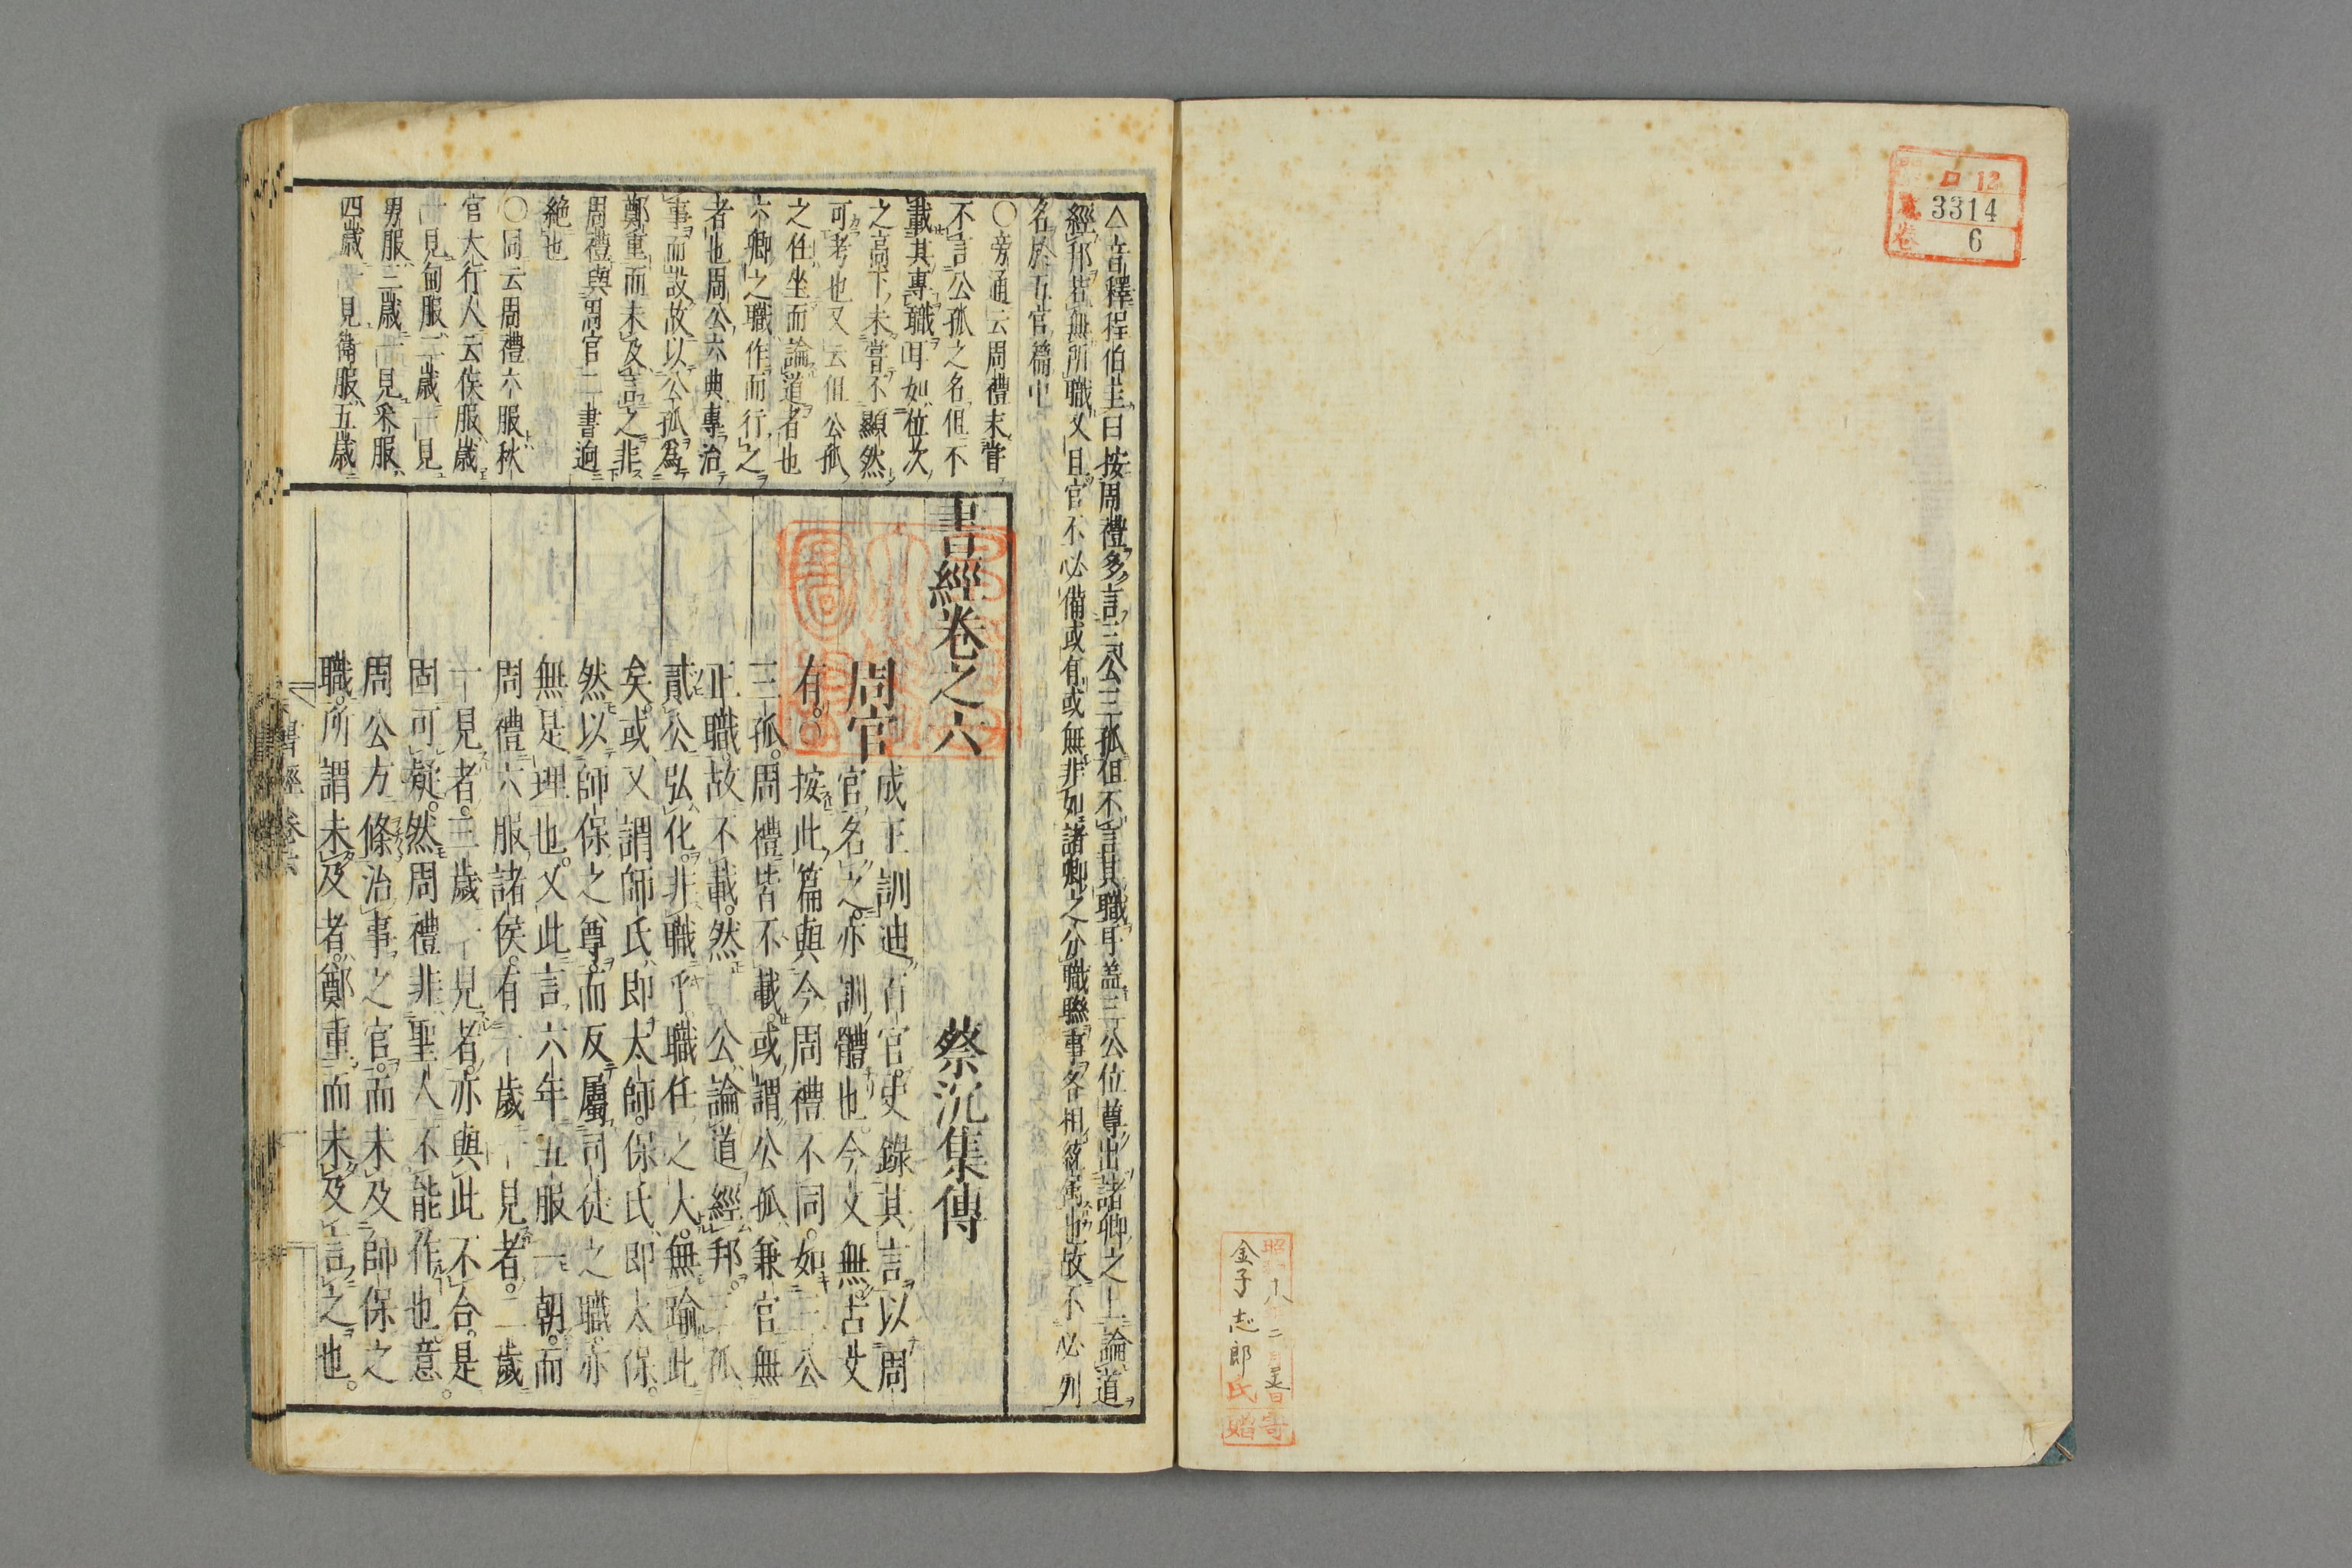 ロ 12
3314
6
金子志郎氏
△音釋程伯圭曰按周禮多言三公三孤但不言其職耳蓋三公位尊出諸卿之上論道
經邦若無所職又且官不必備或有或無非如諸卿之分職聯事各相統屬也故不必列
名於五官篇中
○旁通云周禮未甞
不言公孤之名但不
載其專職耳如位次
之高下未甞不顯然
可考也又云但公孤
之任坐而論道者也
六卿之職作而行之
者也周公六典專治
事而設故以公孤為
鄭重而未及言之非
周禮與周官二書逈
絶也
○同云周禮六服秋
官大行人云侯服歲
一見甸服二歲一見
男服三歲一見采服
四歲一見衛服五歲
書經卷之六 蔡沉集傳
周官
成王訓迪百官史錄其言以周
官名之亦訓體也今文無古文
有○按此篇與今周禮不同如三公
三孤周禮皆不載或謂公孤兼官無
正職故不載然三公論道經邦三孤
貳公弘化非職乎職任之大無踰此
矣或又謂師氏即太師保氏即太保
然以師保之尊而反屬司徒之職亦
無是理也又此言六年五服一朝而
周禮六服諸侯有一歲一見者二歲
一見者三歲一見者亦與此不合是
固可疑然周禮非聖人不能作也意
周公方條治事之官而未及師保之
職所謂未及者鄭重而未及言之也
書經卷六